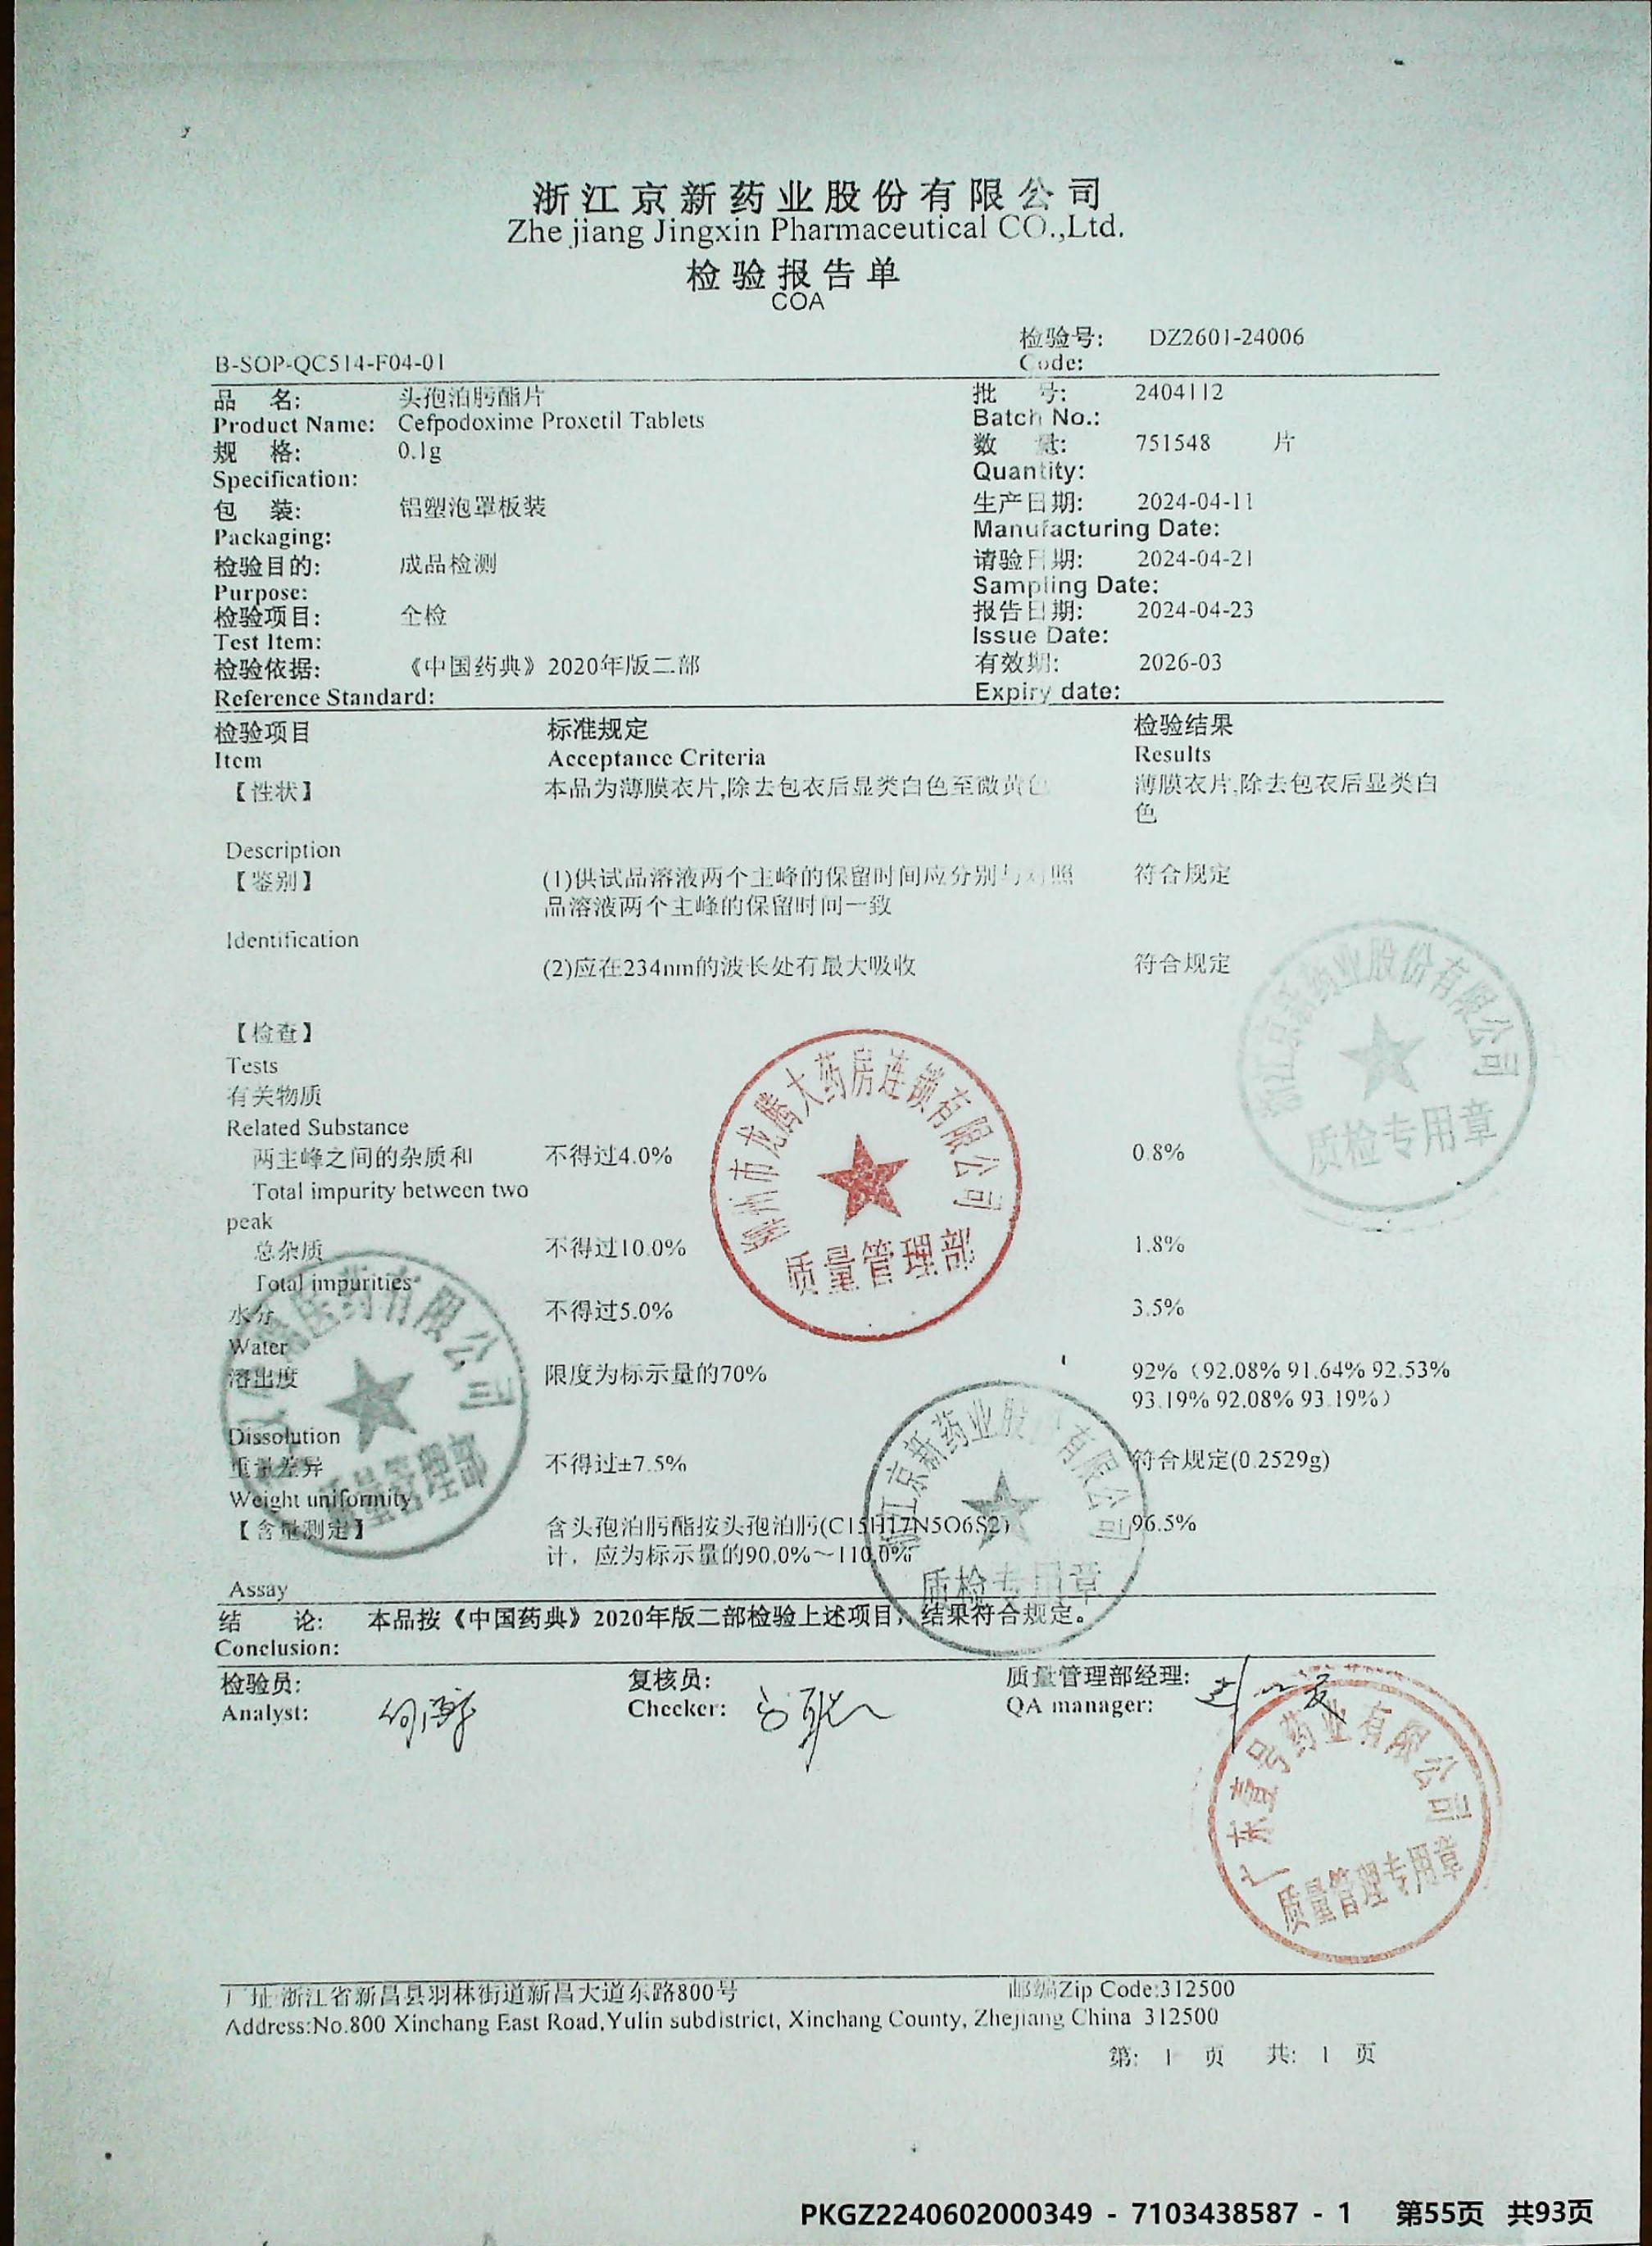 浙江京新药业股份有限公司
Zhe jiang Jingxin Pharmaceutical CO.,Ltd.
检验报告单
COA
检验号: DZ2601-24006
B-SOP-QC514-F04-01 Code:
品 名: 头孢泊肟酯片 批 号: 2404112
Product Name: Cefpodoxime Proxetil Tablets Batch No.:
规 格: 0.1g 数 量: 751548 片
Specification: Quantity:
包 装: 铝塑泡罩板装 生产日期: 2024-04-11
Packaging: Manufacturing Date:
检验目的: 成品检测 请验日期: 2024-04-21
Purpose: Sampling Date:
检验项目: 全检 报告日期: 2024-04-23
Test Item: Issue Date:
检验依据: 《中国药典》2020年版二部 有效期: 2026-03
Reference Standard: Expiry date:
检验项目 标准规定 检验结果
Item Acceptance Criteria Results
【性状】 本品为薄膜衣片,除去包衣后显类白色至微黄色 薄膜衣片,除去包衣后显类白
色
Description
【鉴别】 (1)供试品溶液两个主峰的保留时间应分别与对照 符合规定
品溶液两个主峰的保留时间一致
Identification
(2)应在234nm的波长处有最大吸收 符合规定
【检查】
Tests
有关物质
Related Substance
两主峰之间的杂质和 不得过4.0% 0.8%
Total impurity between two
peak
总杂质 不得过10.0% 1.8%
Total impurities
水分 不得过5.0% 3.5%
Water
溶出度 限度为标示量的70% 92%（92.08% 91.64% 92.53%
93.19% 92.08% 93.19%）
Dissolution
重量差异 不得过±7.5% 符合规定(0.2529g)
Weight uniformity
【含量测定】 含头孢泊肟酯按头孢泊肟(C15H17N5O6S2) 96.5%
计，应为标示量的90.0%～110.0%
Assay
结 论: 本品按《中国药典》2020年版二部检验上述项目，结果符合规定。
Conclusion:
检验员: 复核员: 质量管理部经理:
Analyst: Checker: QA manager:
浙江京新药业股份有限公司
质检专用章
市龙腾大药房连锁有限公司
质量管理部
医药有限公司
质量管理部
浙江京新药业股份有限公司
质检专用章
广东壹号药业有限公司
质量管理专用章
厂址:浙江省新昌县羽林街道新昌大道东路800号 邮编Zip Code:312500
Address:No.800 Xinchang East Road,Yulin subdistrict, Xinchang County, Zhejiang China 312500
第: 1 页 共: 1 页
PKGZ2240602000349 - 7103438587 - 1 第55页 共93页